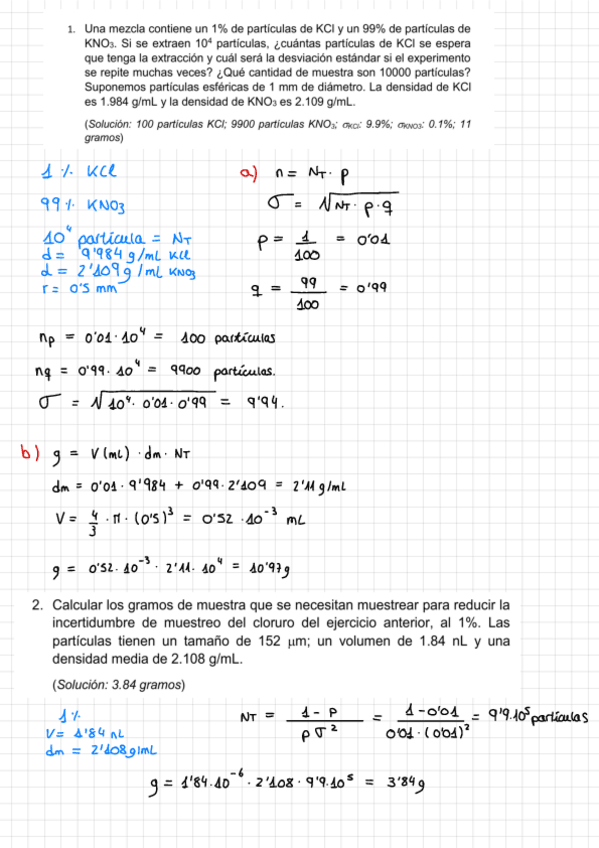 1. Una mezcla contiene un 1% de partículas de KCl y un 99% de partículas de
KNO₃. Si se extraen 10⁴ partículas, ¿cuántas partículas de KCl se espera
que tenga la extracción y cuál será la desviación estándar si el experimento
se repite muchas veces? ¿Qué cantidad de muestra son 10000 partículas?
Suponemos partículas esféricas de 1 mm de diámetro. La densidad de KCl
es 1.984 g/mL y la densidad de KNO₃ es 2.109 g/mL.
(Solución: 100 partículas KCl; 9900 partículas KNO₃; σKCl: 9.9%; σKNO3: 0.1%; 11
gramos)
1 % KCl
99 % KNO3
10⁴ partícula = NT
d = 9'984 g/mL KCl
d = 2'109 g/mL KNO3
r = 0'5 mm
a) n = NT · p
σ = √NT · p · q
p = 1/100 = 0'01
q = 99/100 = 0'99
np = 0'01 · 10⁴ = 100 partículas
nq = 0'99 · 10⁴ = 9900 partículas.
σ = √10⁴ · 0'01 · 0'99 = 9'94.
b) g = V(mL) · dm · NT
dm = 0'01 · 9'984 + 0'99 · 2'109 = 2'11 g/mL
V = 4/3 · π · (0'5)³ = 0'52 · 10⁻³ mL
g = 0'52 · 10⁻³ · 2'11 · 10⁴ = 10'97g
2. Calcular los gramos de muestra que se necesitan muestrear para reducir la
incertidumbre de muestreo del cloruro del ejercicio anterior, al 1%. Las
partículas tienen un tamaño de 152 µm; un volumen de 1.84 nL y una
densidad media de 2.108 g/mL.
(Solución: 3.84 gramos)
1 %
V = 1'84 nL
dm = 2'108 g/mL
NT = 1 - p / pσ² = 1 - 0'01 / 0'01 · (0'01)² = 9'9 · 10⁵ partículas
g = 1'84 · 10⁻⁶ · 2'108 · 9'9 · 10⁵ = 3'84g